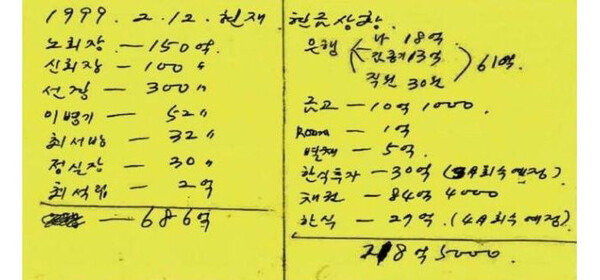 1999. 2. 12. 현재
노회장 — 150억.
신회장 — 100 〃
선경 — 300 〃
이병기 — 52 〃
최서방 — 32 〃
정실장 — 30 〃
최석립 — 2억
— 686억
현금상황
은행
나 18억
13억
직원 30억
61억.
금고 — 10억 1000.
Room — 1억
별채 — 5억.
한식투자 — 30억 (3月회수예정)
채권 — 84억 4000
한식 — 27억. (4月회수예정)
218억 5000.